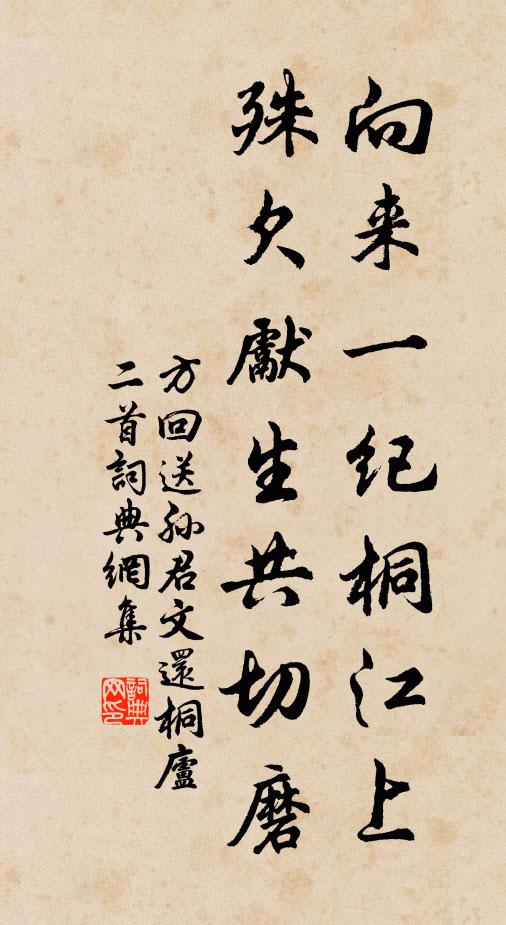 向来一纪桐江上
殊欠獻生共切磨
方回送孙君文還桐廬
二首詞典網集
詞典
网印